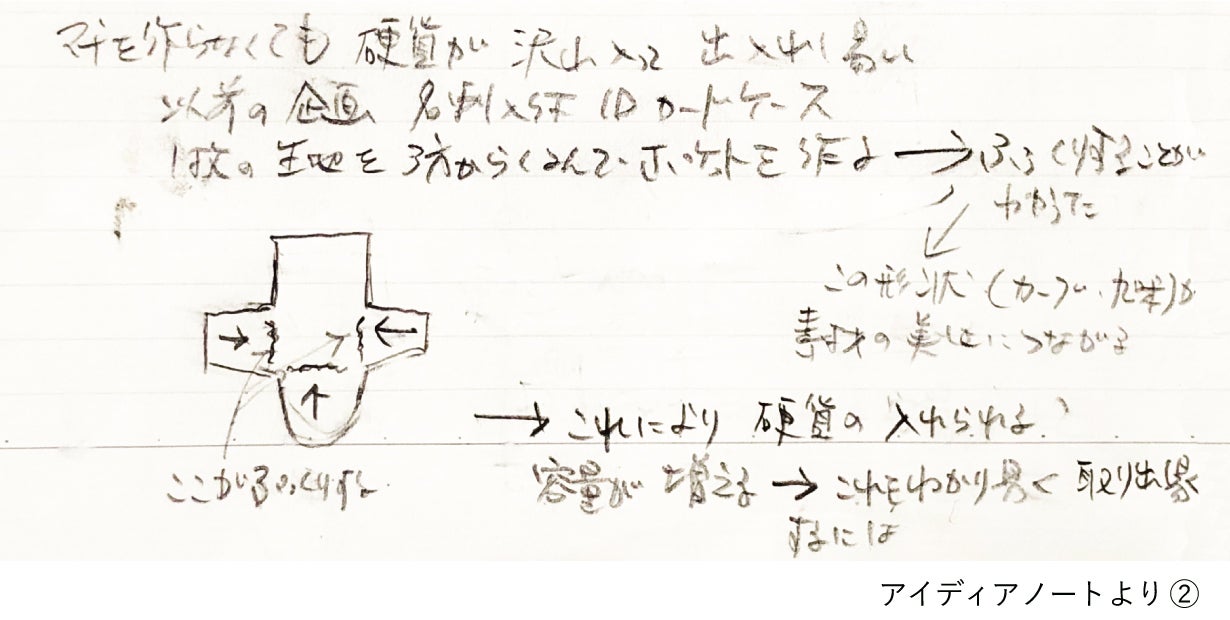 マチを作らなくても 硬貨が 沢山入って 出入れし易い
以前の企画 名刺入れ IDカードケース
1枚の生地を3方からくるんでポケットを作る → ふっくりすることが
わかった
この形状(カーブ、丸味)が
素材の美しさにつながる
→ これにより 硬貨の入れられる
容量が増える → これをわかり易く 取り出し易く
するには
ここがふっくりする
アイディアノートより②